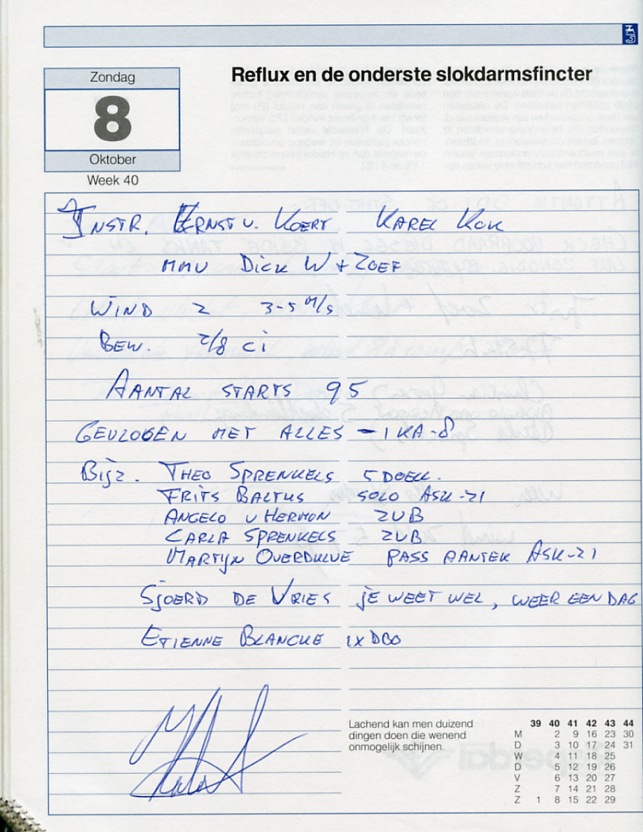 Zondag
8
Oktober
Week 40
Reflux en de onderste slokdarmsfincter
INSTR. ERNST V. KOERT KAREL KOK
MMV DICK W + ZOEF
WIND 2 3-5 M/S
BEW. 2/8 Ci
AANTAL STARTS 95
GEVLOGEN MET ALLES - 1 KA-8
BIJZ. THEO SPRENKELS 5 DOELL.
FRITS BALTUS SOLO ASK-21
ANGELO V HERMON ZVB
CARLA SPRENKELS ZVB
MARTIJN OVERDULVE PASS AANTEK ASK-21
SJOERD DE VRIES JE WEET WEL, WEER EEN DAG
ETIENNE BLANCKE 1X DGO
Lachend kan men duizend
dingen doen die wenend
onmogelijk schijnen.
39 40 41 42 43 44
M 2 9 16 23 30
D 3 10 17 24 31
W 4 11 18 25
D 5 12 19 26
V 6 13 20 27
Z 7 14 21 28
Z 1 8 15 22 29